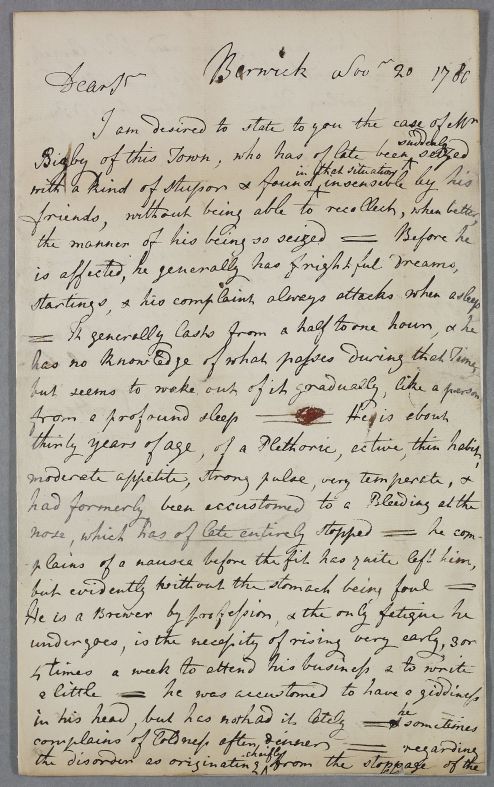 Berwick Novr 20 1780
Dear Sr
I am desired to state to you the case of Mr
Bigby of this Town, who has of late been suddenly seized
with a kind of stupor & found in that situation insensible by his
friends, without being able to recollect, when better,
the manner of his being so seized = Before he
is affected, he generally has frightful Dreams,
startings, & his complaint always attacks when asleep
= It generally lasts from a half to one hour, & he
has no knowledge of what passes during that Time,
but seems to wake out of it gradually, like a person
from a profound sleep = He is about
thirty years of age, of a Plethoric, active, thin habit,
moderate appetite, strong pulse, very temperate, &
had formerly been accustomed to a Bleeding at the
nose, which has of late entirely stopped = he com-
-plains of a nausea before the fit has quite left him,
but evidently without the stomach being foul =
He is a Brewer by profession, & the only fatigue he
undergoes, is the necessity of rising very early, 3 or
4 times a week to attend his business & to write
a little = he was accustomed to have a giddiness
in his head, but has not had it lately = & he sometimes
complains of Coldness after dinner = regarding
the disorder as originating chiefly from the stoppage of the